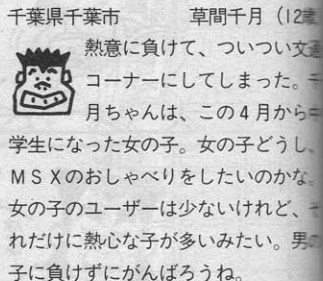 千葉県千葉市　草間千月（12歳
熱意に負けて、ついつい文通
コーナーにしてしまった。千
月ちゃんは、この4月から中
学生になった女の子。女の子どうし、
MSXのおしゃべりをしたいのかな。
女の子のユーザーは少ないけれど、そ
れだけに熱心な子が多いみたい。男の
子に負けずにがんばろうね。